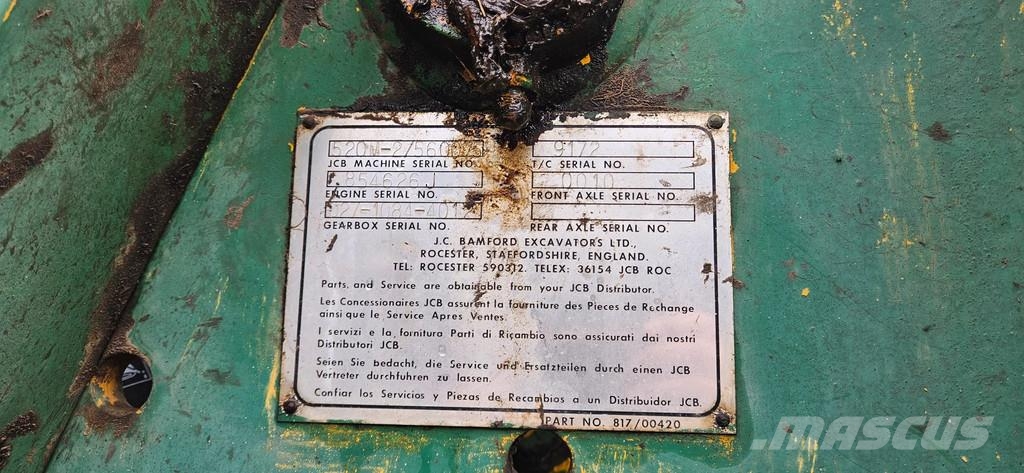 9172
JCB MACHINE SERIAL NO. T/C SERIAL NO.
854626J 0010
ENGINE SERIAL NO. FRONT AXLE SERIAL NO.
GEARBOX SERIAL NO. REAR AXLE SERIAL NO.
J.C. BAMFORD EXCAVATORS LTD.,
ROCESTER, STAFFORDSHIRE, ENGLAND.
TEL: ROCESTER 590312. TELEX: 36154 JCB ROC
Parts, and Service are obtainable from your JCB Distributor.
Les Concessionaires JCB assurent la fourniture des Pieces de Rechange
ainsi que le Service Apres Ventes.
I servizi e la fornitura Parti di Ricambio sono assicurati dai nostri
Distributori JCB.
Seien Sie bedacht, die Service und Ersatzteilen durch einen JCB
Vertreter durchfuhren zu lassen.
Confiar los Servicios y Piezas de Recambios a un Distribuidor JCB.
PART NO. 817/00420
MASCUS